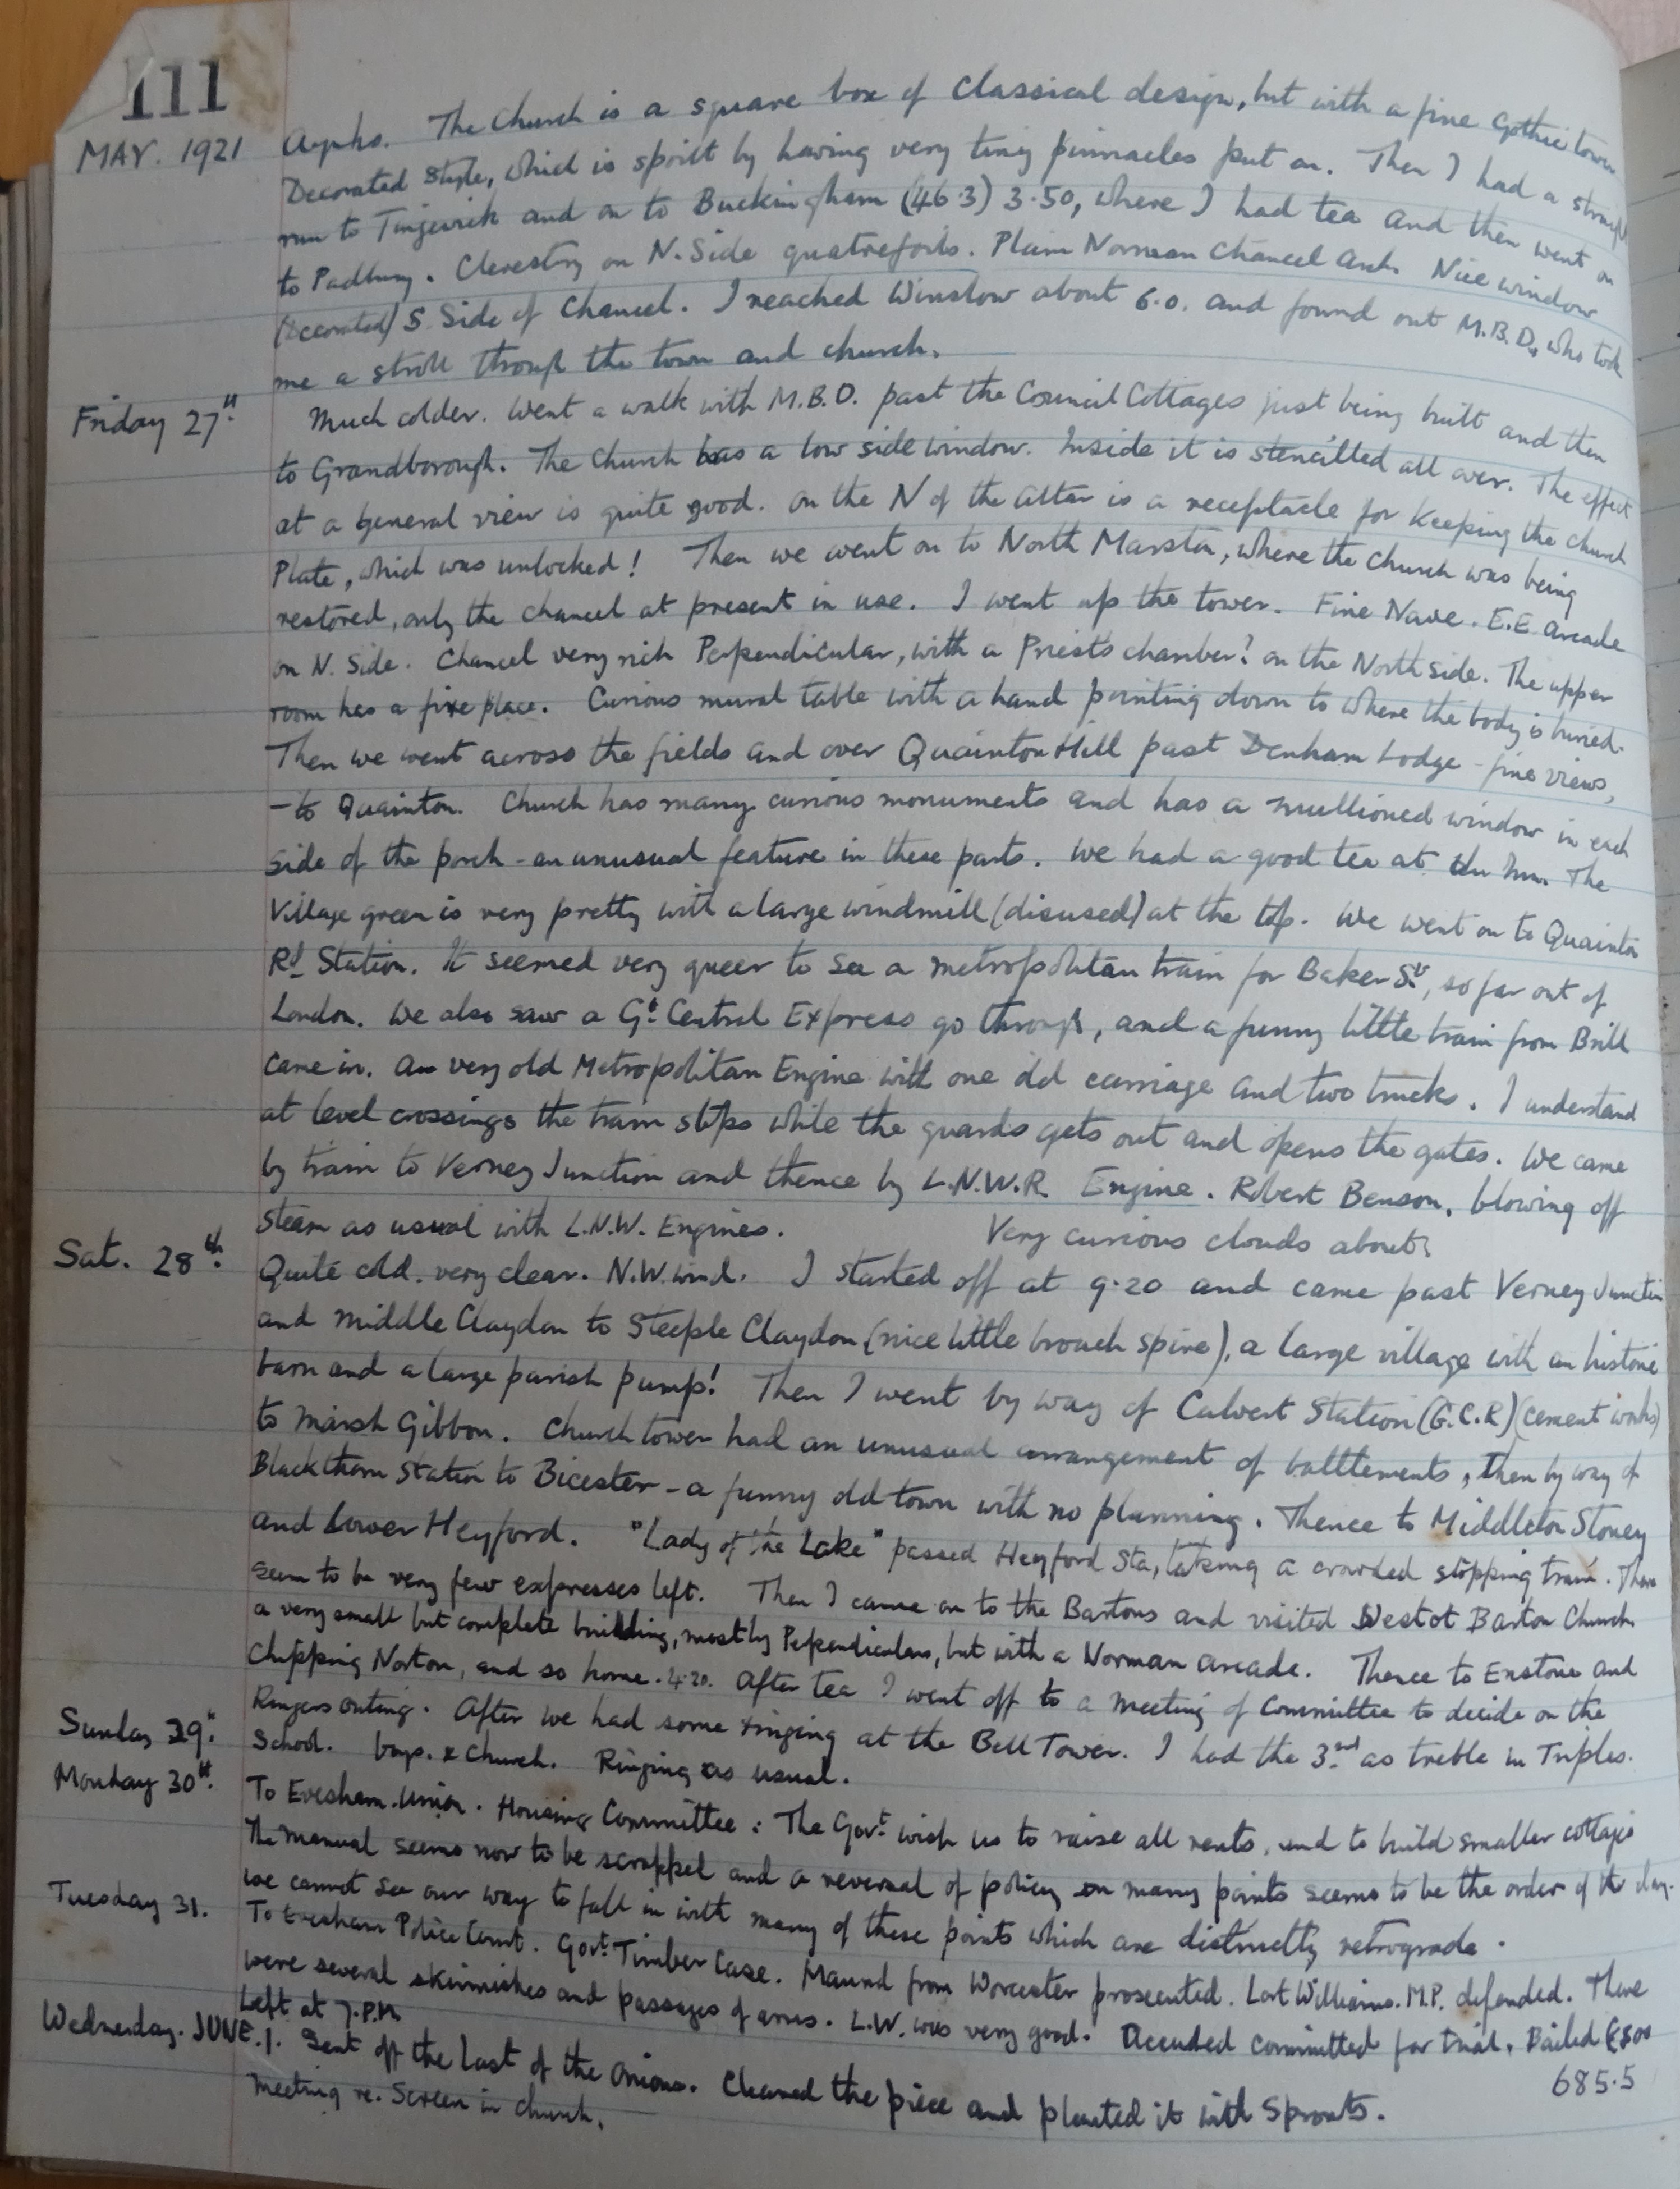 111
MAY. 1921
Aynho. The Church is a square box of classical design, but with a fine Gothic tower
Decorated style, which is spoilt by having very tiny pinnacles put on. Then I had a straight
run to Tingewick and on to Buckingham (46.3) 3.50, where I had tea and then went on
to Padbury. Clerestory on N. Side quatrefoils. Plain Norman Chancel Arch. Nice window
(Decorated) S Side of Chancel. I reached Winslow about 6.0. and found out M.B.D. who took
me a stroll through the town and church.
Friday 27th. Much colder. Went a walk with M.B.D. past the Council Cottages just being built and then
to Grandborough. The Church has a low side window. Inside it is stencilled all over. The effect
at a general view is quite good. On the N of the altar is a receptacle for keeping the church
Plate, which was unlocked! Then we went on to North Marston, where the church was being
restored, only the chancel at present in use. I went up the tower. Fine Nave. E.E. arcade
on N. Side. Chancel very rich Perpendicular, with a Priests chamber? on the North side. The upper
room has a fire place. Curious mural table with a hand pointing down to where the body is buried.
Then we went across the fields and over Quainton Hill past Denham Lodge - fine views,
- to Quainton. Church has many curious monuments and has a mullioned window in each
side of the porch - an unusual feature in these parts. We had a good tea at the Inn. The
Village green is very pretty with a large windmill (disused) at the top. We went on to Quainton
Rd Station. It seemed very queer to see a metropolitan train for Baker St, so far out of
London. We also saw a Gt Central Express go through, and a funny little train from Brill
came in. An very old Metropolitan Engine with one old carriage and two trucks. I understand
at level crossings the train stops while the guards gets out and opens the gates. We came
by train to Verney Junction and thence by L.N.W.R. Engine. Robert Benson, blowing off
steam as usual with L.N.W. Engines. Very curious clouds about.
Sat. 28th. Quite cold. very clear. N.W. wind. I started off at 9.20 and came past Verney Junction
and Middle Claydon to Steeple Claydon (nice little broach spire), a large village with an historic
barn and a large parish pump! Then I went by way of Calvert Station (G.C.R) (cement works)
to Marsh Gibbon. Church tower had an unusual arrangement of battlements, then by way of
Blackthorn Station to Bicester - a funny old town with no planning. Thence to Middleton Stoney
and Lower Heyford. "Lady of the Lake" passed Heyford Sta, taking a crowded stopping train. There
seem to be very few expresses left. Then I came on to the Bartons and visited Westcot Barton Church
a very small but complete building, mostly Perpendicular, but with a Norman arcade. Thence to Enstone and
Chipping Norton, and so home. 4.20. After tea I went off to a meeting of Committee to decide on the
Ringers outing. After we had some ringing at the Bell Tower. I had the 3rd as treble in Triples.
Sunday 29th. School. boys. & Church. Ringing as usual.
Monday 30th. To Evesham. Union. Housing Committee: The Govt wish us to raise all rents, and to build smaller cottages
The manual seems now to be scrapped and a reversal of policy on many points seems to be the order of the day.
we cannot see our way to fall in with many of these points which are distinctly retrograde.
Tuesday 31. To Evesham Police Court. Govt Timber Case. Maund from Worcester prosecuted. Lort Williams. M.P. defended. There
were several skirmishes and passages of arms. L.W. was very good. Accused committed for trial. Bailed £500
Left at 7.P.M.
Wednesday. JUNE.1. Sent off the last of the Onions. Cleared the piece and planted it with Sprouts. 685.5
Meeting re. Screen in church.